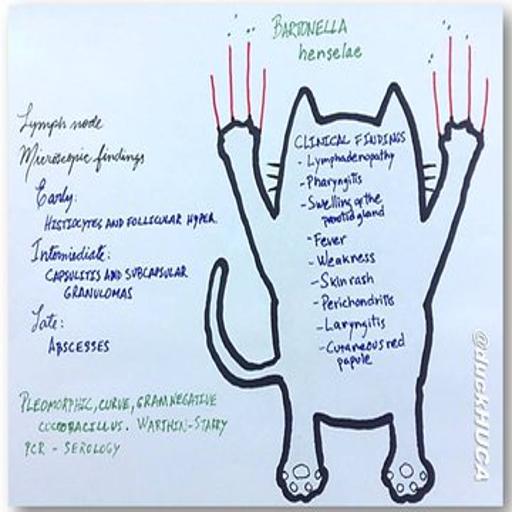 BARTONELLA
henselae
Lymph node
Microscopic findings
Early:
HISTIOCYTES AND FOLLICULAR HYPER.
Intermediate:
CAPSULITIS AND SUBCAPSULAR
GRANULOMAS
Late:
ABSCESSES
PLEOMORPHIC, CURVE, GRAM NEGATIVE
COCCOBACILLUS. WARTHIN-STARRY
PCR - SEROLOGY
CLINICAL FINDINGS
- Lymphadenopathy
- Pharyngitis
- Swelling of the
parotid gland
- Fever
- Weakness
- Skin rash
- Perichondritis
- Laryngitis
- Cutaneous red
papule
@duckHUCA